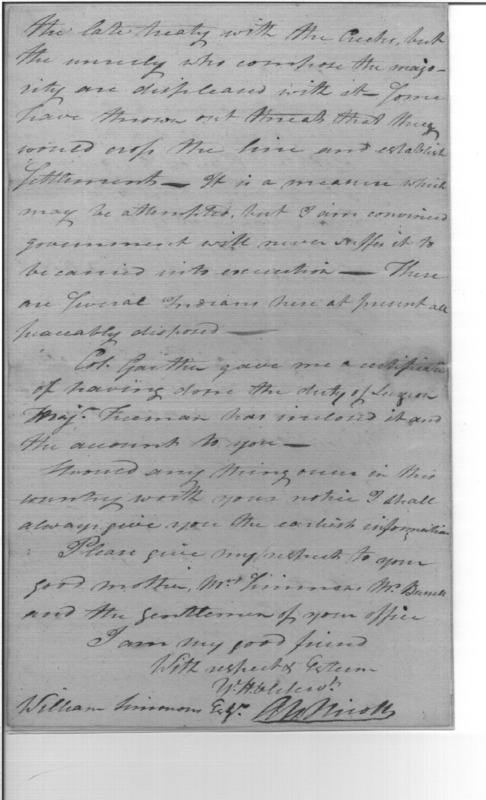 the late treaty with the Creeks, but
the unruly who compose the majo-
rity are displeased with it — Some
have thrown out threats that they
would cross the line and establish
Settlements — It is a measure which
may be attempted, but I am convinced
government will never suffer it to
be carried into execution — There
are several Indians here at present all
peaceably disposed —
Col. Gaither gave me a certificate
of having done the duty of Surgeon
Majr. Freeman has inclosed it and
the account to you —
Should any thing occur in this
country worth your notice I shall
always give you the earliest information
Please give my respects to your
good mother, Mrs. Simmons Mr.
and the gentlemen of your office
I am my good friend
With respect & Esteem
Yr. Hble Servt.
William Simmons Esqr.